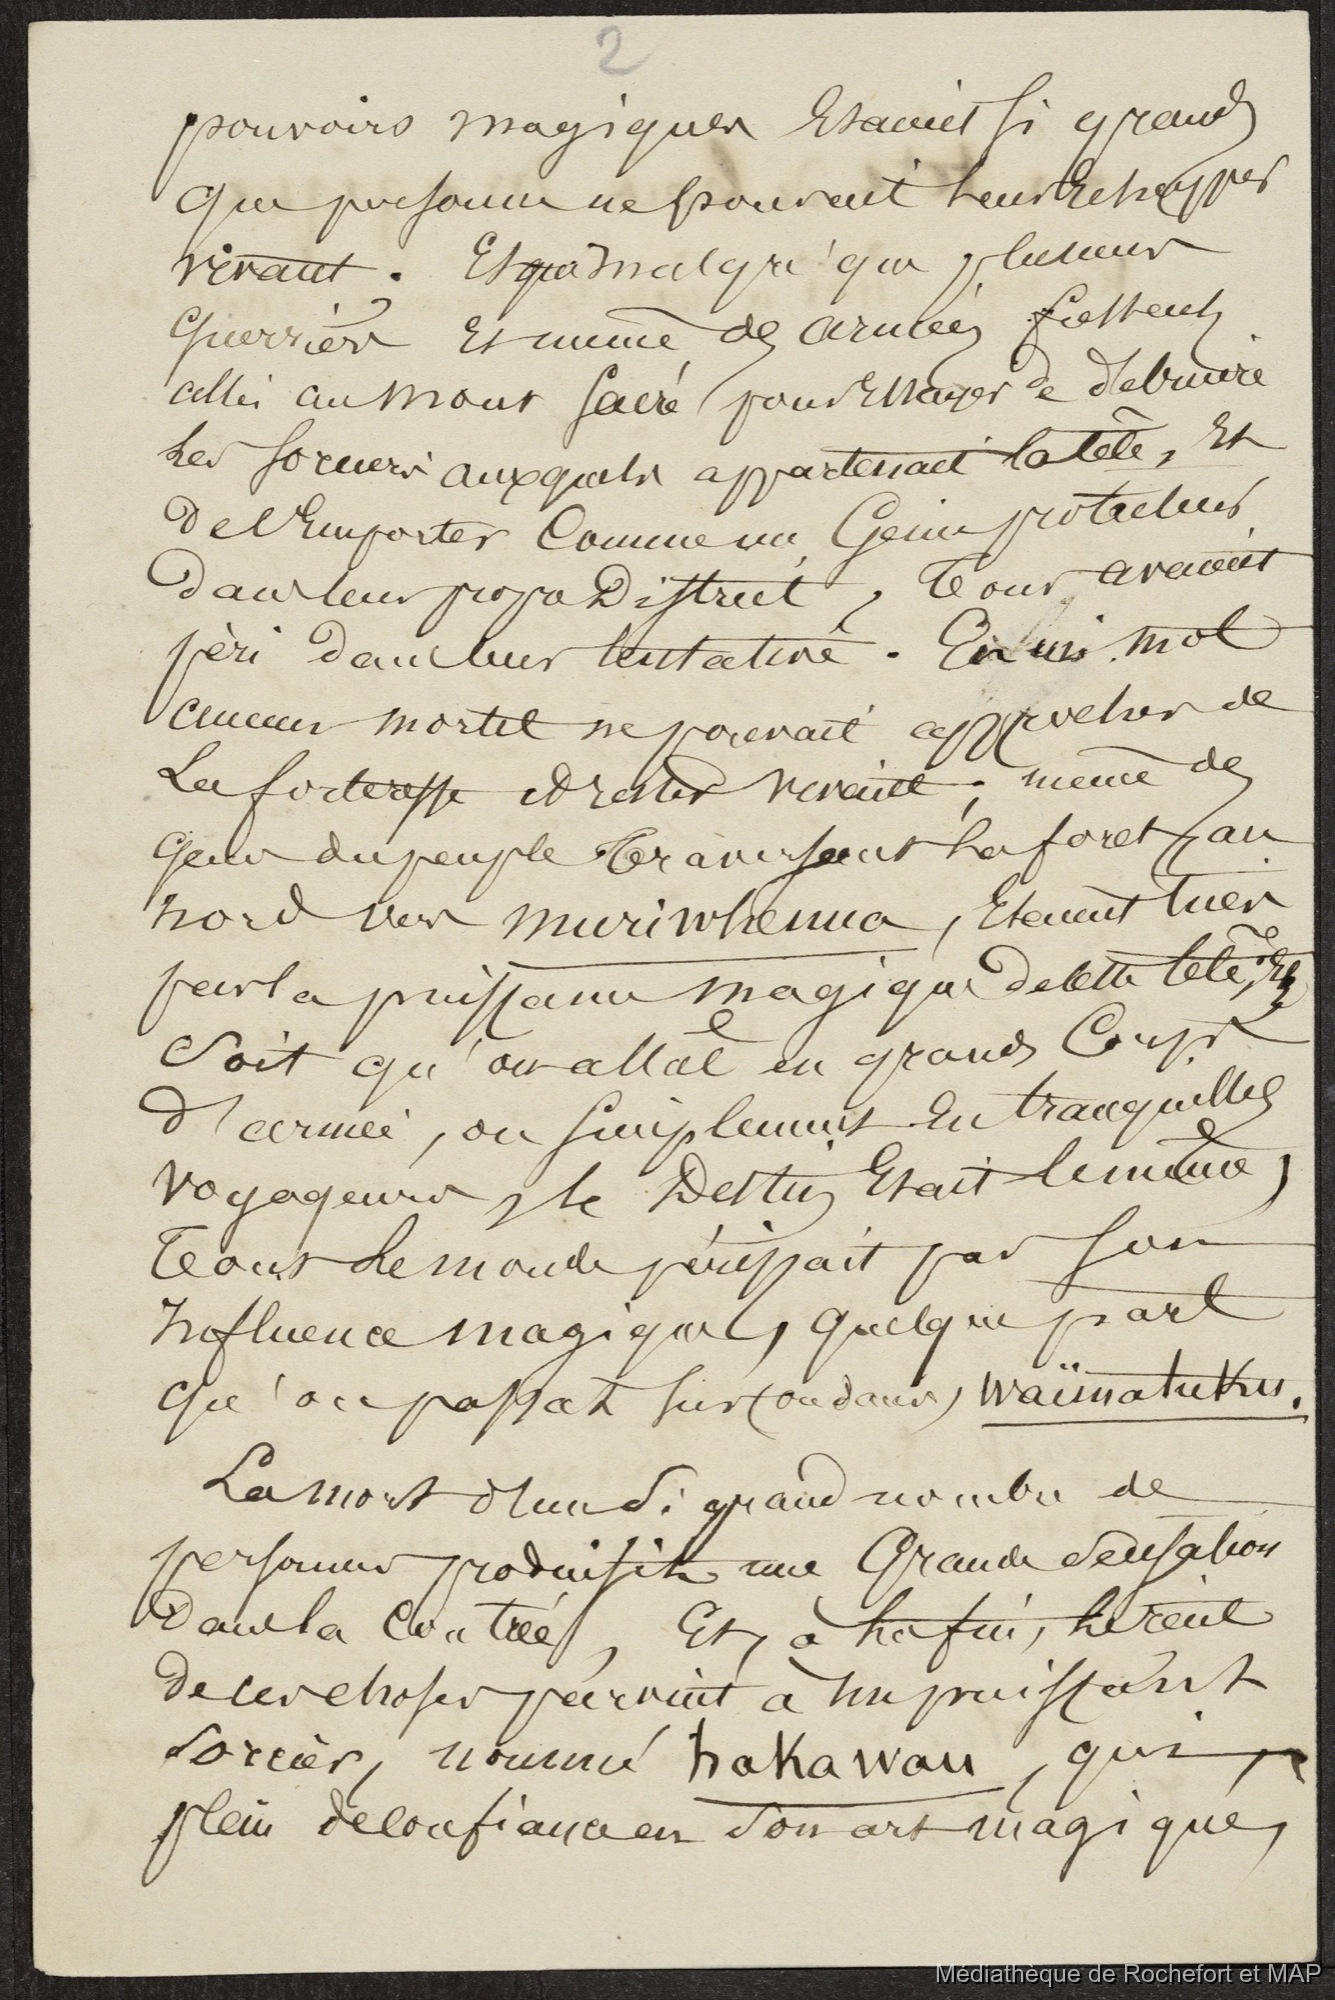 2
pouvoirs magiques Etaient si grands
que personne ne pouvait leur Echapper
vivant. Et malgré que plusieurs
guerriers Et même des armées fussent
allés au mont Sacré pour Essayer de détruire
les sorciers auxquels appartenait la tête, Et
de l'Emporter Comme un Génie protecteur
dans leur propre District, Tous avaient
péri dans leur tentative. En un mot
aucun mortel ne pouvait approcher de
La forteresse et rester vivant; même des
gens du peuple Traversant La foret, au
nord vers muriwhenua, Etaient tués
par la puissance magique de cette tête, Et
Soit qu'on allât en grands Corps
d'armée, ou simplement En tranquilles
voyageurs, le Destin Etait le même,
Tout Le monde périssait par son
Influence magique, quelque part
qu'on passat sur (ou dans) Waïmatuku.
La mort d'un si grand nombre de
personnes produisit une Grande Sensation
Dans la Contrée, Et, à la fin, le récit
de ces choses parvint à un puissant
Sorcier, nommé hakawau, qui,
plein de confiance en Son art magique,
Médiathèque de Rochefort et MAP